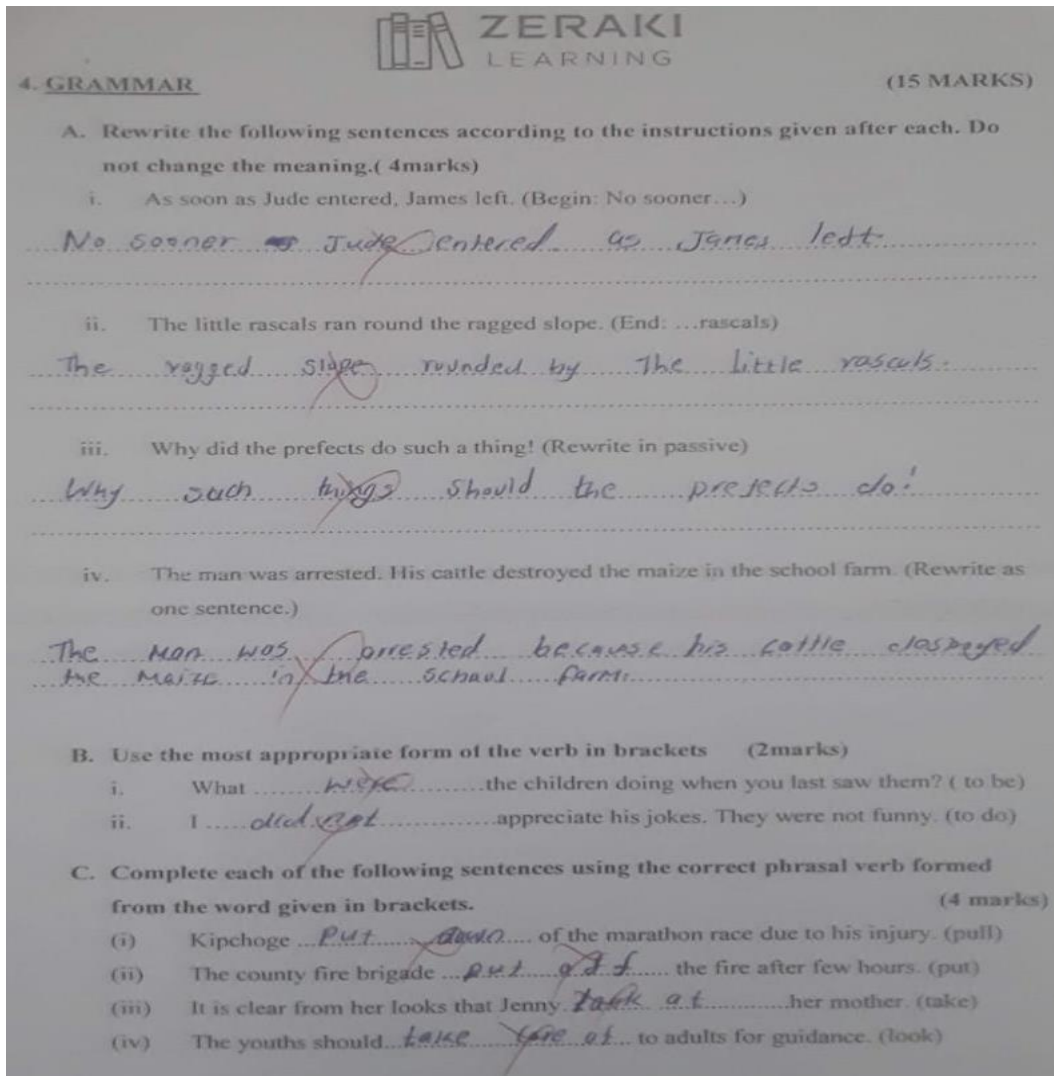 ZERAKI
LEARNING
4. GRAMMAR (15 MARKS)
A. Rewrite the following sentences according to the instructions given after each. Do
not change the meaning.( 4marks)
i. As soon as Jude entered, James left. (Begin: No sooner…)
No sooner Jude entered as James left.
ii. The little rascals ran round the ragged slope. (End: …rascals)
The ragged slope rounded by The Little rascals.
iii. Why did the prefects do such a thing! (Rewrite in passive)
Why such things should the prefects do!
iv. The man was arrested. His cattle destroyed the maize in the school farm. (Rewrite as
one sentence.)
The Man was arrested because his cattle
the Maize in the farm.
B. Use the most appropriate form of the verb in brackets (2marks)
i. What ........were.........the children doing when you last saw them? ( to be)
ii. I .....did not..............appreciate his jokes. They were not funny. (to do)
C. Complete each of the following sentences using the correct phrasal verb formed
from the word given in brackets. (4 marks)
(i) Kipchoge ...Put down.... of the marathon race due to his injury. (pull)
(ii) The county fire brigade ...put off..... the fire after few hours. (put)
(iii) It is clear from her looks that Jenny at............her mother. (take)
(iv) The youths should...take of... to adults for guidance. (look)